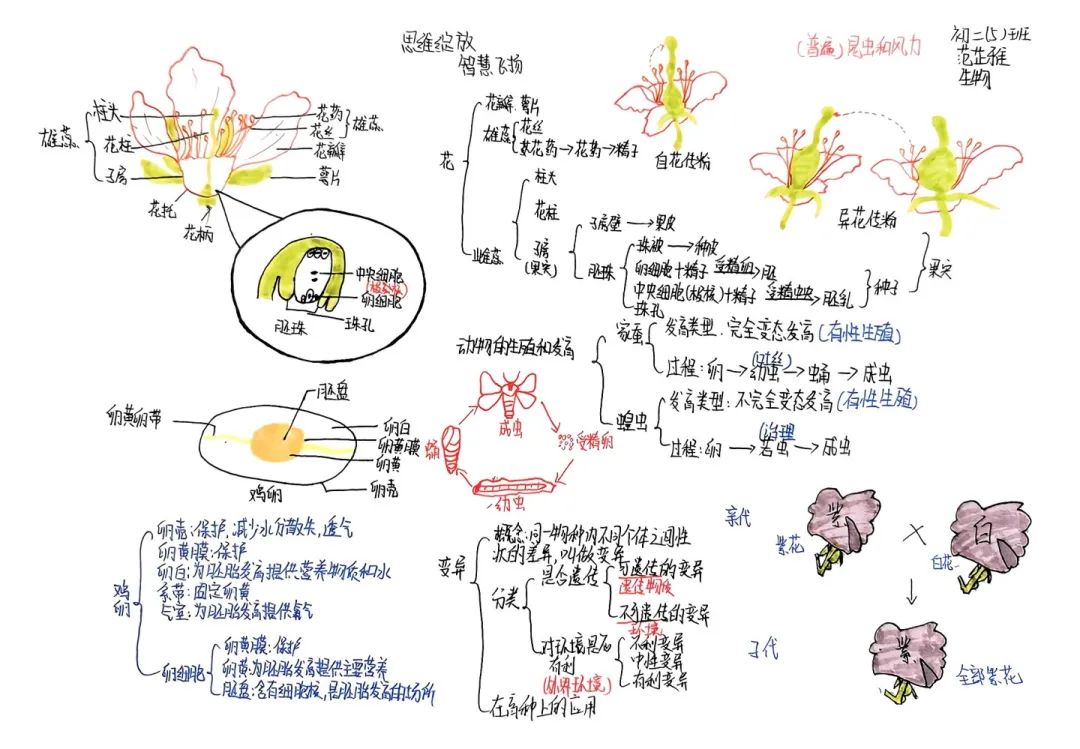 思维绽放
智慧飞扬
(普遍)昆虫和风力
初二(5)班
范芷雅
生物
雄蕊
柱头
花柱
子房
花托
花柄
花药
花丝
雄蕊
花瓣
萼片
中央细胞
(极核)
卵细胞
胚珠
珠孔
花
花瓣 萼片
雄蕊
花丝
花药→花药→精子
雌蕊
柱头
花柱
子房
(果实)
子房壁→果皮
胚珠
珠被→种皮
卵细胞+精子 受精卵→胚
中央细胞(极核)+精子 受精虫央→胚乳
珠孔
种子
果实
自花传粉
异花传粉
动物的生殖和发育
家蚕
发育类型:完全变态发育(有性生殖)
过程:卵→幼虫→蛹→成虫
(吐丝)
蝗虫
发育类型:不完全变态发育(有性生殖)
过程:卵→若虫→成虫
(治理)
成虫
受精卵
幼虫
蛹
胚盘
卵黄卵带
卵白
卵黄膜
卵黄
卵壳
鸡卵
鸡卵
卵壳:保护,减少水分散失,透气
卵黄膜:保护
卵白:为胚胎发育提供营养物质和水
系带:固定卵黄
气室:为胚胎发育提供氧气
卵细胞
卵黄膜:保护
卵黄:为胚胎发育提供主要营养
胚盘:含有细胞核,是胚胎发育的场所
变异
概念:同一物种内不同个体之间性
状的差异,叫做变异
分类
是否遗传
可遗传的变异
遗传物质
不可遗传的变异
环境
对环境是否
有利
(外界环境)
不利变异
中性变异
有利变异
在育种上的应用
亲代
紫花
紫
×
白
白花
子代
紫
全部紫花